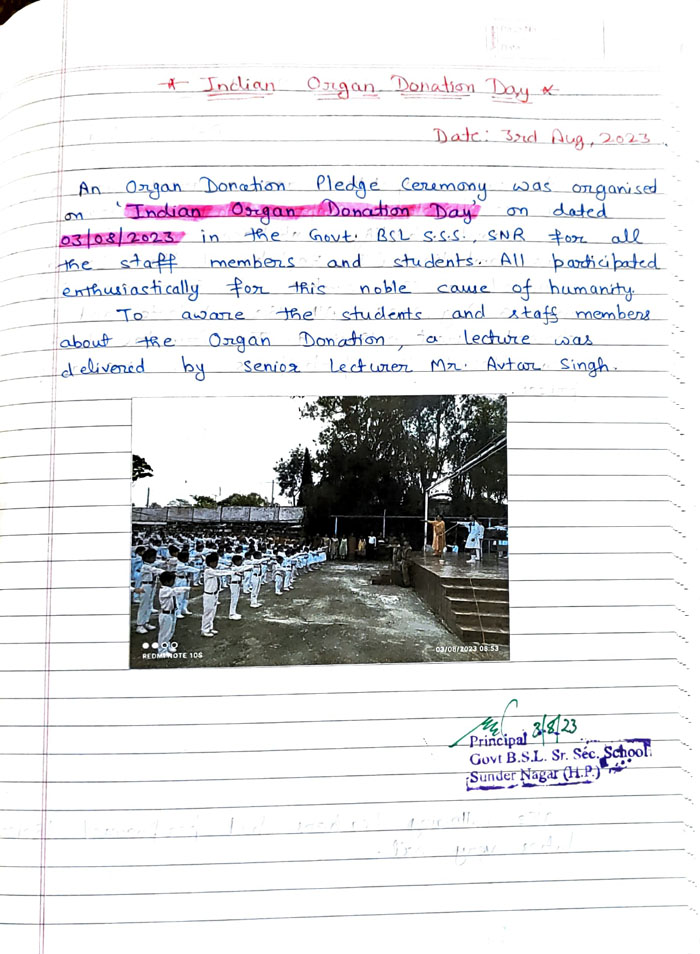 * Indian Organ Donation Day *
Date: 3rd Aug, 2023
An Organ Donation Pledge Ceremony was organised
on 'Indian Organ Donation Day' on dated
03/08/2023 in the Govt. BSL S.S.S., SNR for all
the staff members and students. All participated
enthusiastically for this noble cause of humanity.
To aware the students and staff members
about the Organ Donation, a lecture was
delivered by senior Lecturer Mr. Avtar Singh.
REDMI NOTE 10S
03/08/2023 08:53
3/8/23
Principal
Govt B.S.L. Sr. Sec. School
Sunder Nagar (H.P.)